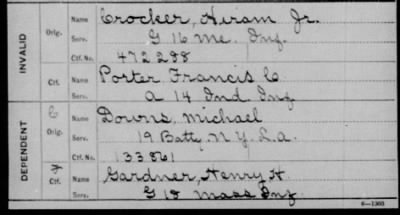 INVALID
Orig.
Name Crocker, Hiram Jr.
Serv. G 16 Me. Inf.
Ctf. No. 472288
Ctf.
Name Porter Francis C
Serv. A 14 Ind Inf
DEPENDENT
C
Orig.
Name Downs, Michael
Serv. 19 Batty N.Y. L.a.
Ctf. No. 133861
Ctf.
Name Gardner, Henry H.
Serv. G 18 Mass Inf
6—1360